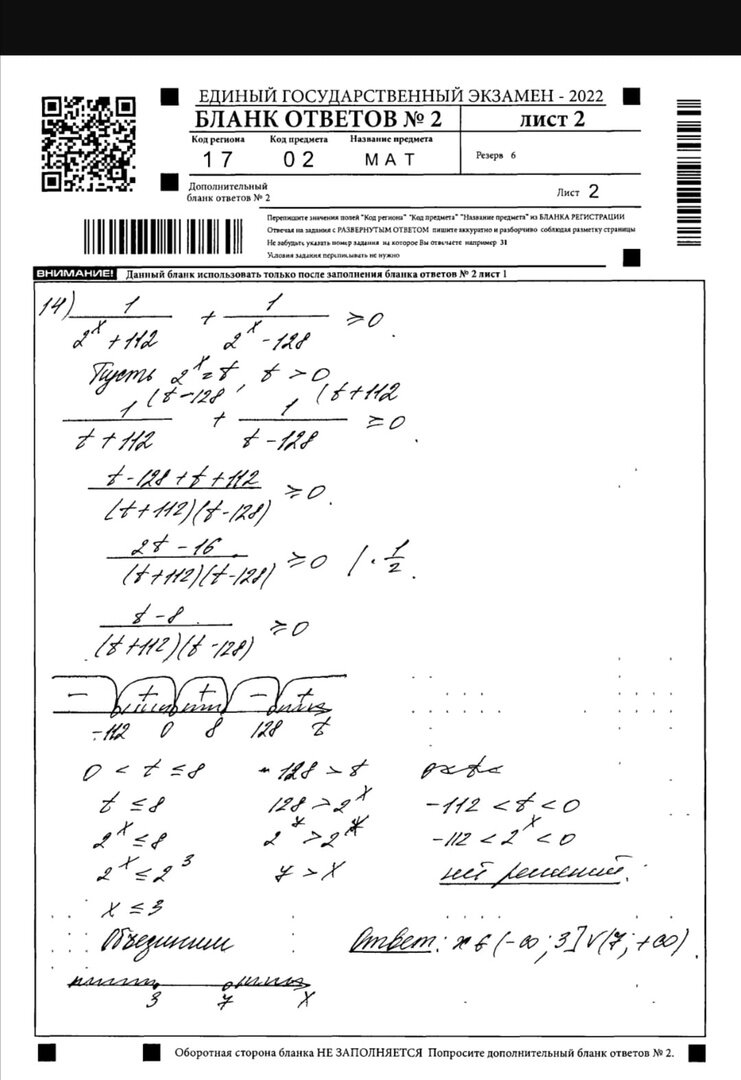 ЕДИНЫЙ ГОСУДАРСТВЕННЫЙ ЭКЗАМЕН - 2022
БЛАНК ОТВЕТОВ № 2 лист 2
Код региона Код предмета Название предмета
17 02 МАТ Резерв 6
Дополнительный
бланк ответов № 2
Лист 2
Перепишите значения полей "Код региона" "Код предмета" "Название предмета" из БЛАНКА РЕГИСТРАЦИИ
Отвечая на задания с РАЗВЕРНУТЫМ ОТВЕТОМ пишите аккуратно и разборчиво соблюдая разметку страницы
Не забудьте указать номер задания на которое Вы отвечаете например 31
Условия задания переписывать не нужно
ВНИМАНИЕ! Данный бланк использовать только после заполнения бланка ответов № 2 лист 1
14) 1/(2^x + 112) + 1/(2^x - 128) ≥ 0.
Пусть 2^x = t, t > 0
1(t - 128/(t + 112) + 1(t + 112/(t - 128) ≥ 0.
(t - 128 + t + 112)/((t + 112)(t - 128)) ≥ 0.
(2t - 16)/((t + 112)(t - 128)) ≥ 0 | · 1/2.
(t - 8)/((t + 112)(t - 128)) ≥ 0
- + + - +
-112 0 8 128 t
0 < t ≤ 8 128 > t
t ≤ 8 128 > 2^x -112 < t < 0
2^x ≤ 8 2^7 > 2^x -112 < 2^x < 0
2^x ≤ 2^3 7 > x нет решений.
x ≤ 3
Объединим Ответ: x ∈ (-∞; 3] ∪ (7; +∞)
3 7 x
Оборотная сторона бланка НЕ ЗАПОЛНЯЕТСЯ Попросите дополнительный бланк ответов № 2.